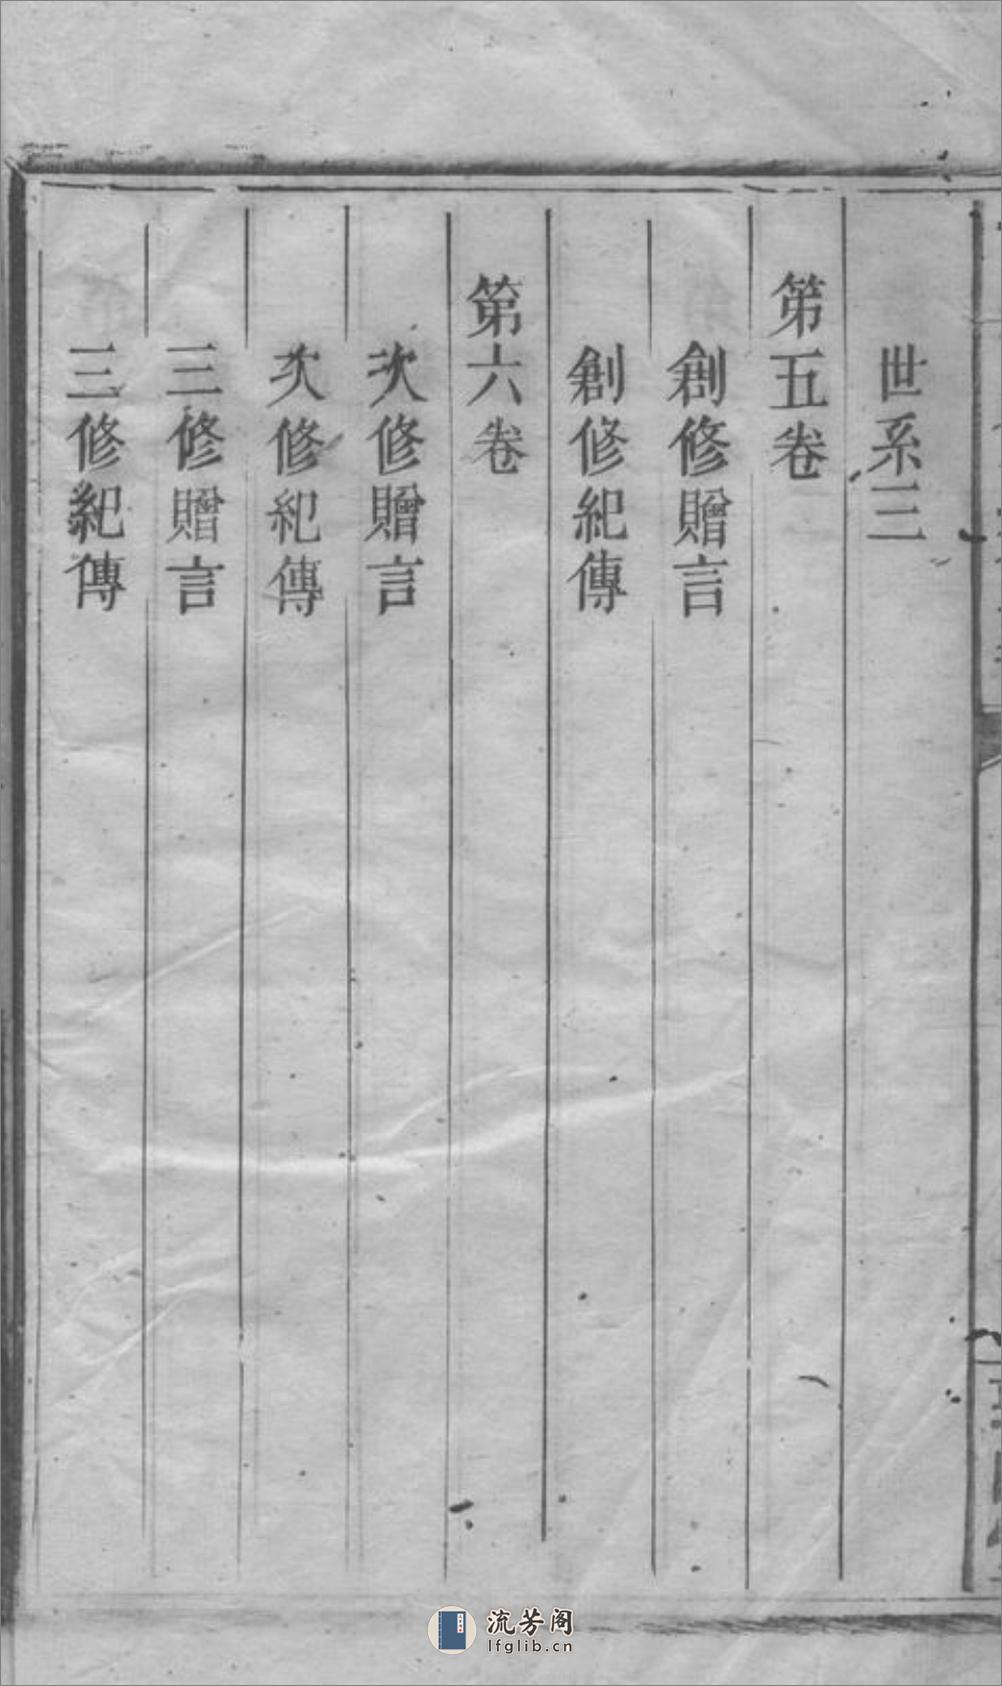 世系三
第五卷
創修贈言
創修紀傳
第六卷
次修贈言
次修紀傳
三修贈言
三修紀傳
流芳阁
lfglib.cn